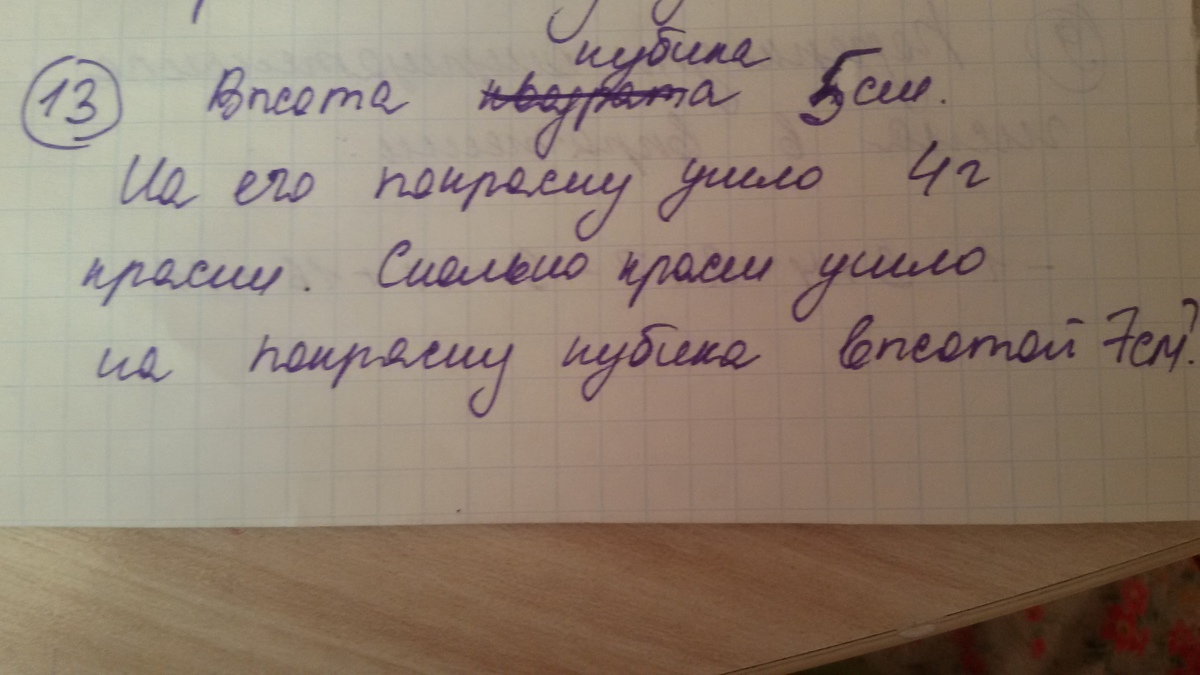 13 Высота кубика 5 см.
На его покраску ушло 4 г
краски. Сколько краски ушло
на покраску кубика высотой 7 см?